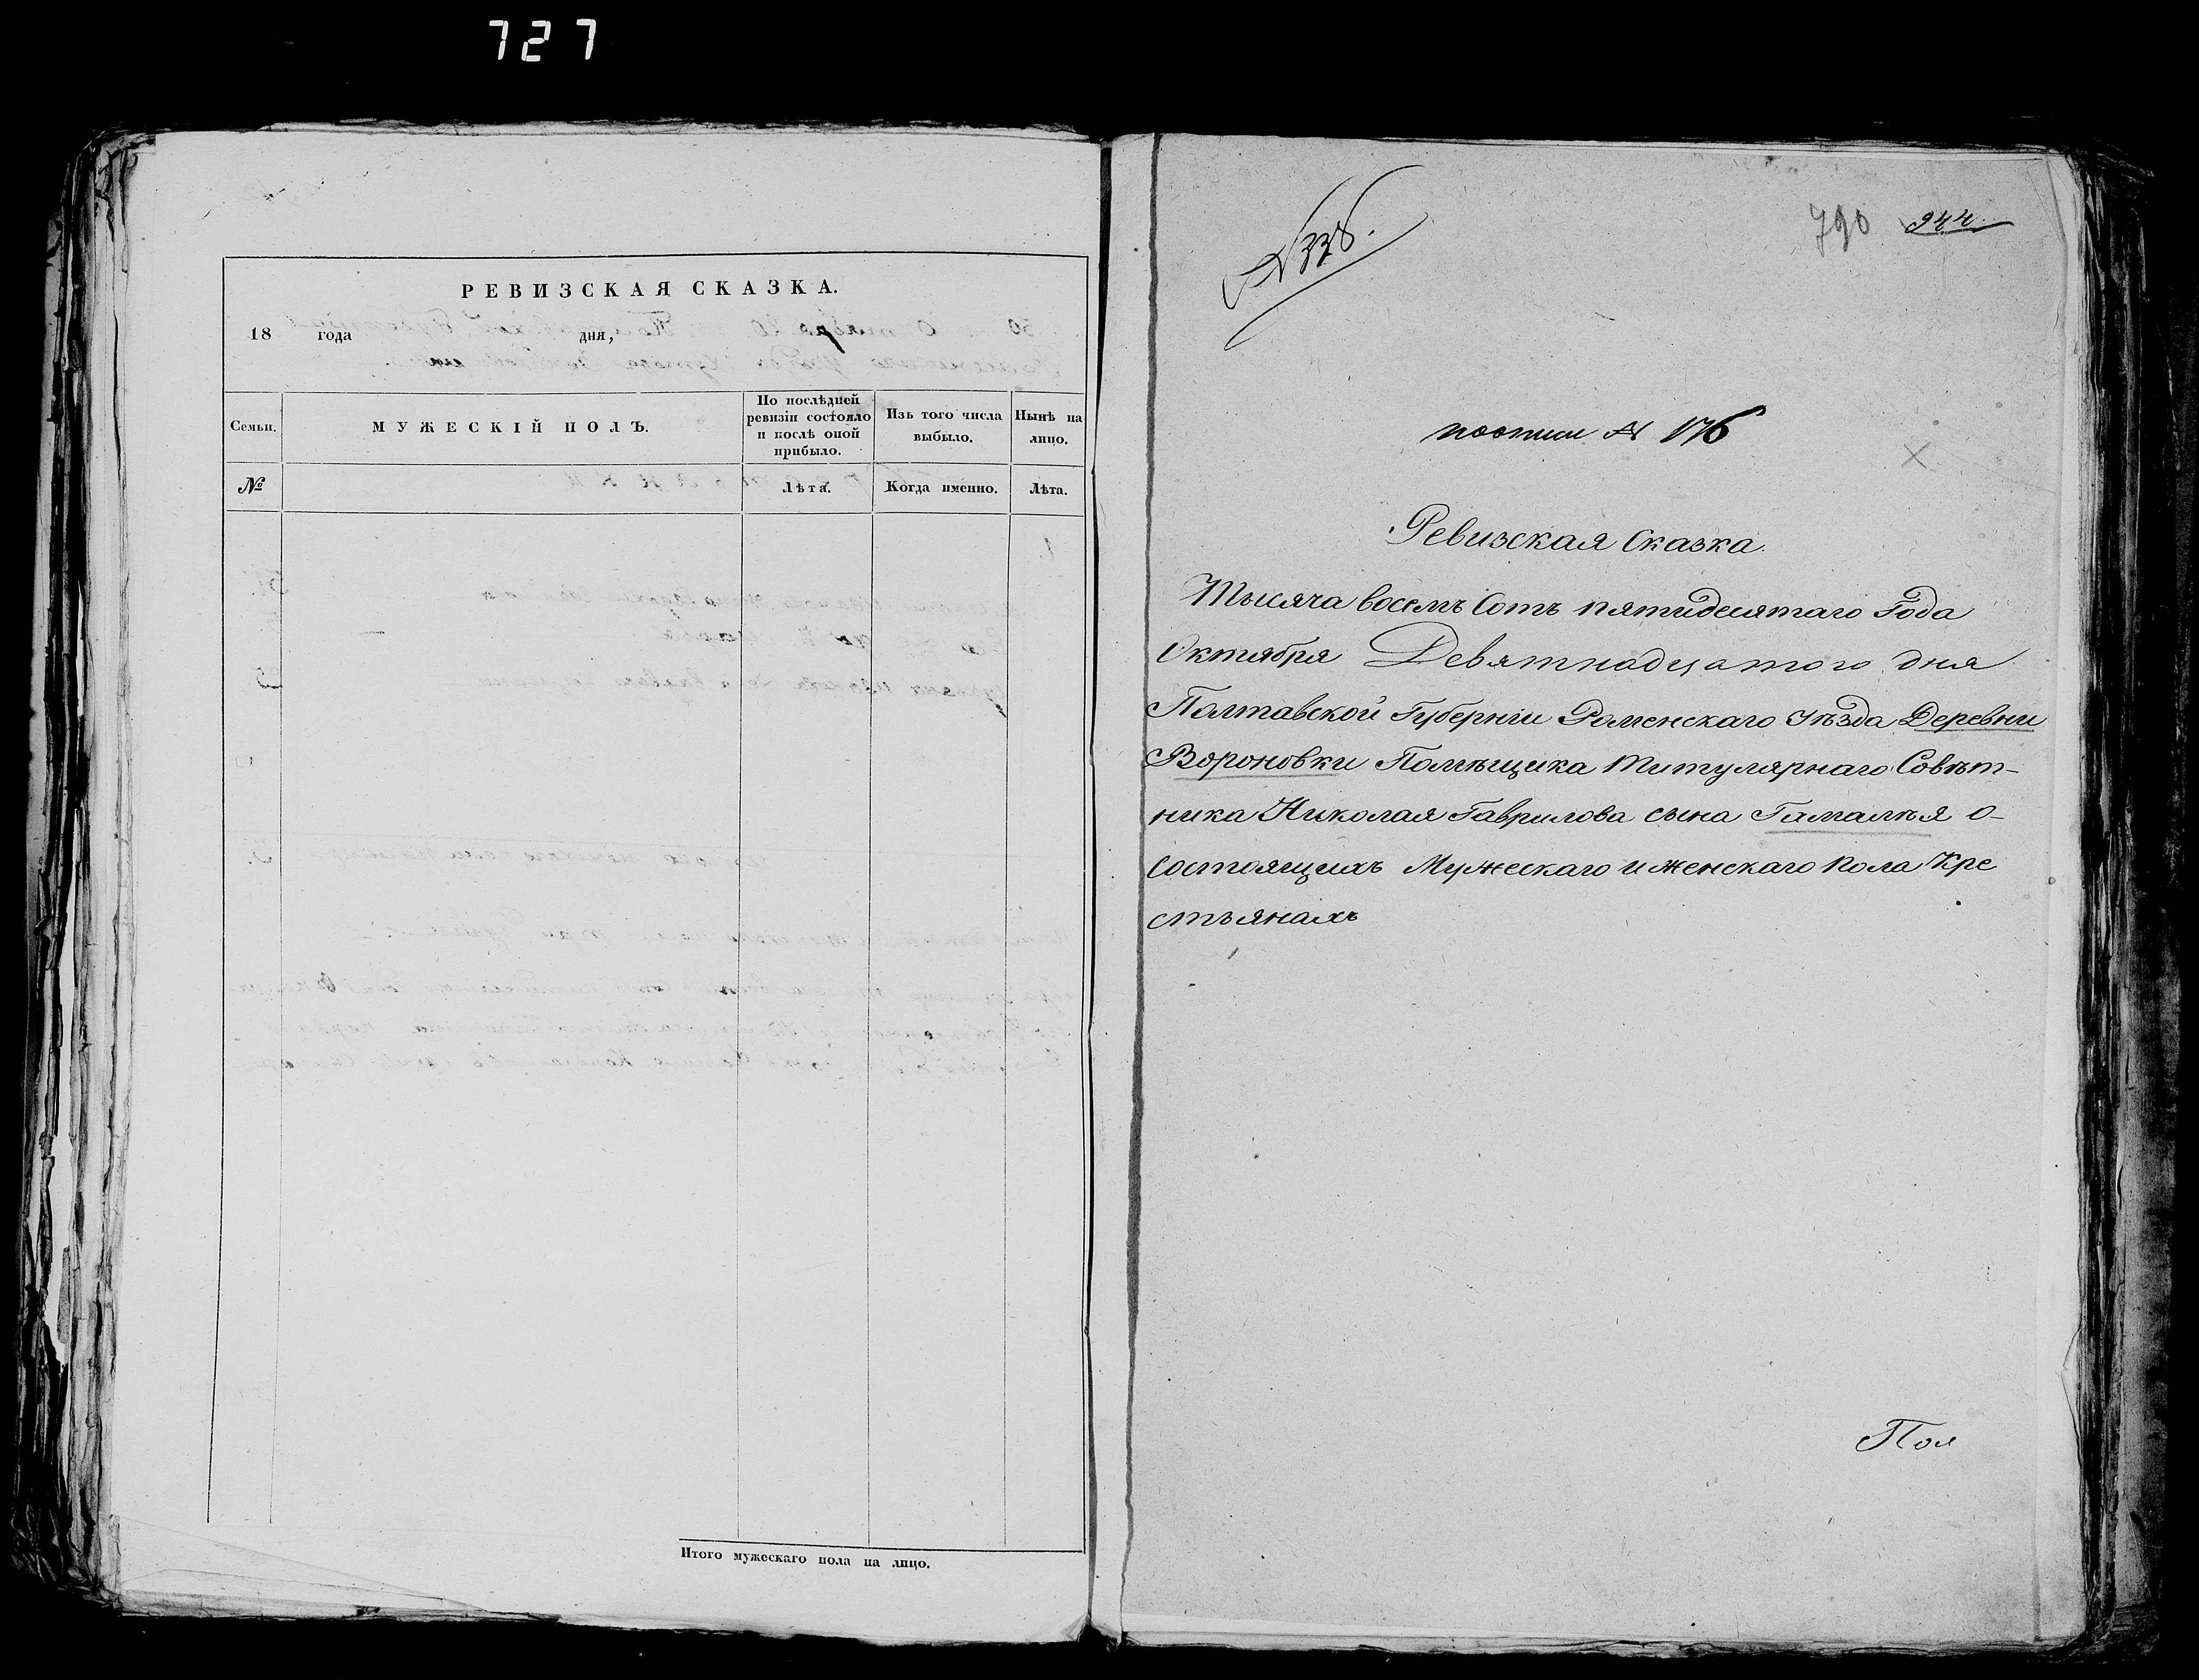 727
РЕВИЗСКАЯ СКАЗКА.
18 года дня,
Семьи.
МУЖЕСКІЙ ПОЛЪ.
По послѣдней
ревизіи состояло
и послѣ оной
прибыло.
Изъ того числа
выбыло.
Нынѣ на
лицо.
№
Лѣта.
Когда именно.
Лѣта.
Итого мужескаго пола на лицо.
790 944
№ 338.
поописи № 176
Ревизская Сказка.
Тысяча восемъ Сотъ пятидесятаго Года
Октября Девятнадцатого дня
Полтавской Губерніи Роменскаго Уѣзда Деревни
Вороновки Помѣщика Титулярнаго Совѣт-
ника Николая Гаврилова сына Гамалѣя о-
состоящихъ Мужескаго и женскаго пола Кре
стьянахъ
Пол